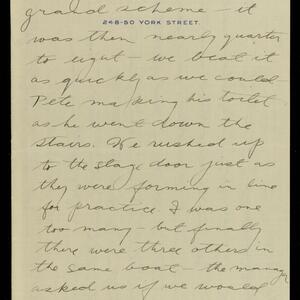 grand scheme — it
248-50 YORK STREET.
was then nearly quarter
to eight — we beat it
as quickly as we could —
Pete making his toilet
as he went down the
stairs. We rushed up
to the stage door just as
they were forming in line
for practice. I was one
too many — but finally
there were three others in
the same boat — the manager
asked us if we would